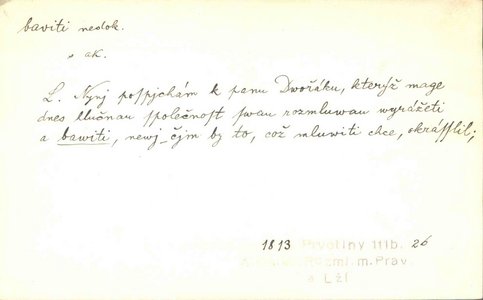 baviti nedok.
s ak.
L. Nynj pospjchám k panu Dwořáku, kterýž mage
dnes slučnau společnost swau rozmluwau wyrážeti
a bawiti, newj čjm by to, což mluwiti chce, okrásslil;
1813 Prvotiny IIIb. 26
Rozml. m. Prav.
a Lží